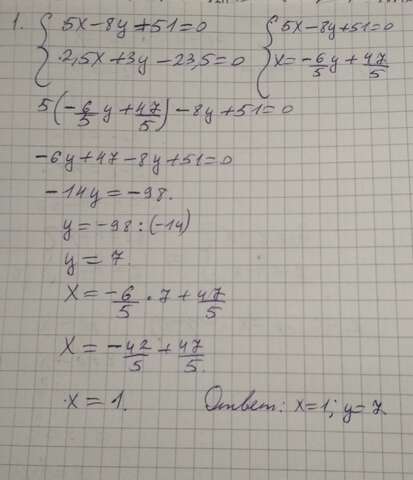 1. { 5x-8y+51=0 { 5x-8y+51=0
2,5x+3y-23,5=0 x=-6/5 y+47/5
5(-6/5 y+47/5)-8y+51=0
-6y+47-8y+51=0
-14y=-98.
y=-98:(-14)
y=7.
x=-6/5 · 7+47/5
x=-42/5+47/5.
x=1. Ответ: x=1; y=7